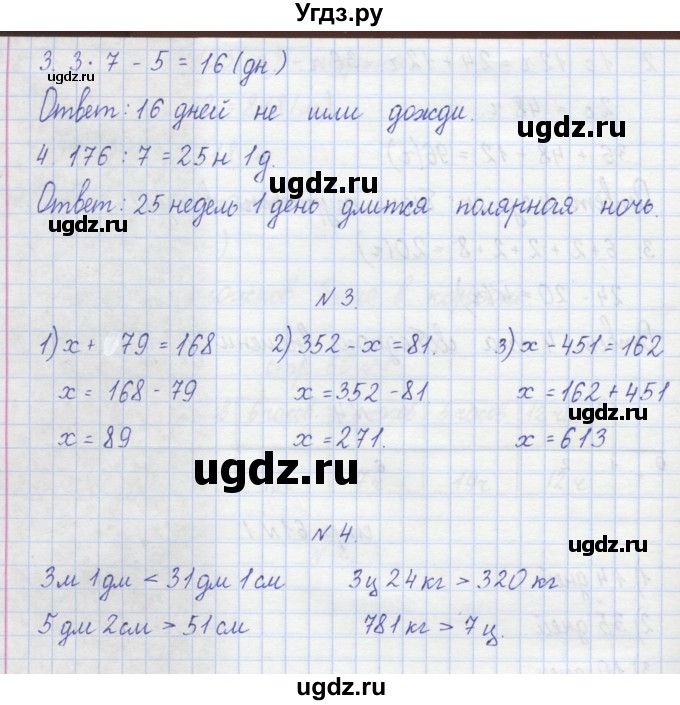 Угдз.ру
3. 3 · 7 - 5 = 16 (дн)
угдз.ру
Ответ: 16 дней не шли дожди.
ugdz.ru
4 176 : 7 = 25 н 1 д.
ugdz.ru
Ответ: 25 недель 1 день длится полярная ночь.
ugdz.ru
N 3.
1) x + 79 = 168 2) 352 - x = 81. 3) x - 451 = 162
x = 168 - 79 x = 352 - 81 x = 162 + 451
x = 89 x = 271. x = 613
ugdz.ru ugdz.ru
N 4.
3 м 1 дм < 31 дм 1 см 3 ц 24 кг > 320 кг
ugdz.ru
5 дм 2 см > 51 см 781 кг > 7 ц.
ugdz.ru
ugdz.ru ugdz.ru